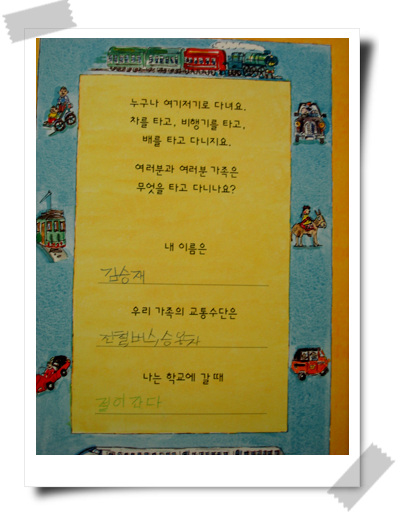 누구나 여기저기로 다녀요.
차를 타고, 비행기를 타고,
배를 타고 다니지요.
여러분과 여러분 가족은
무엇을 타고 다니나요?
내 이름은
김승재
우리 가족의 교통수단은
전철버스승용차
나는 학교에 갈 때
걸어간다